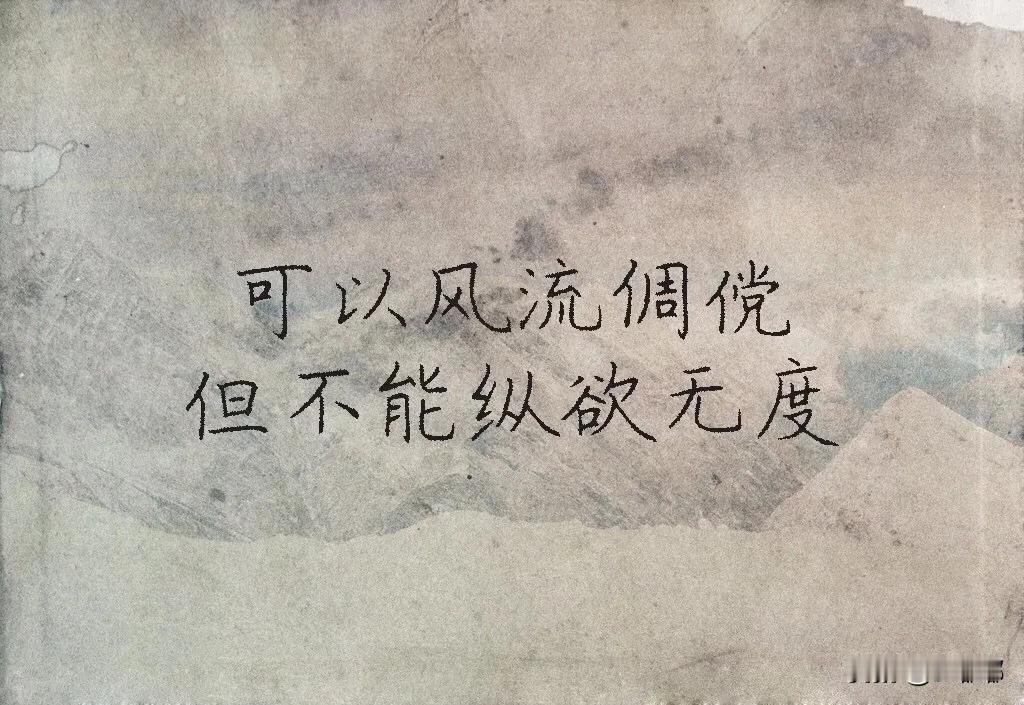 可以风流倜傥
但不能纵欲无度